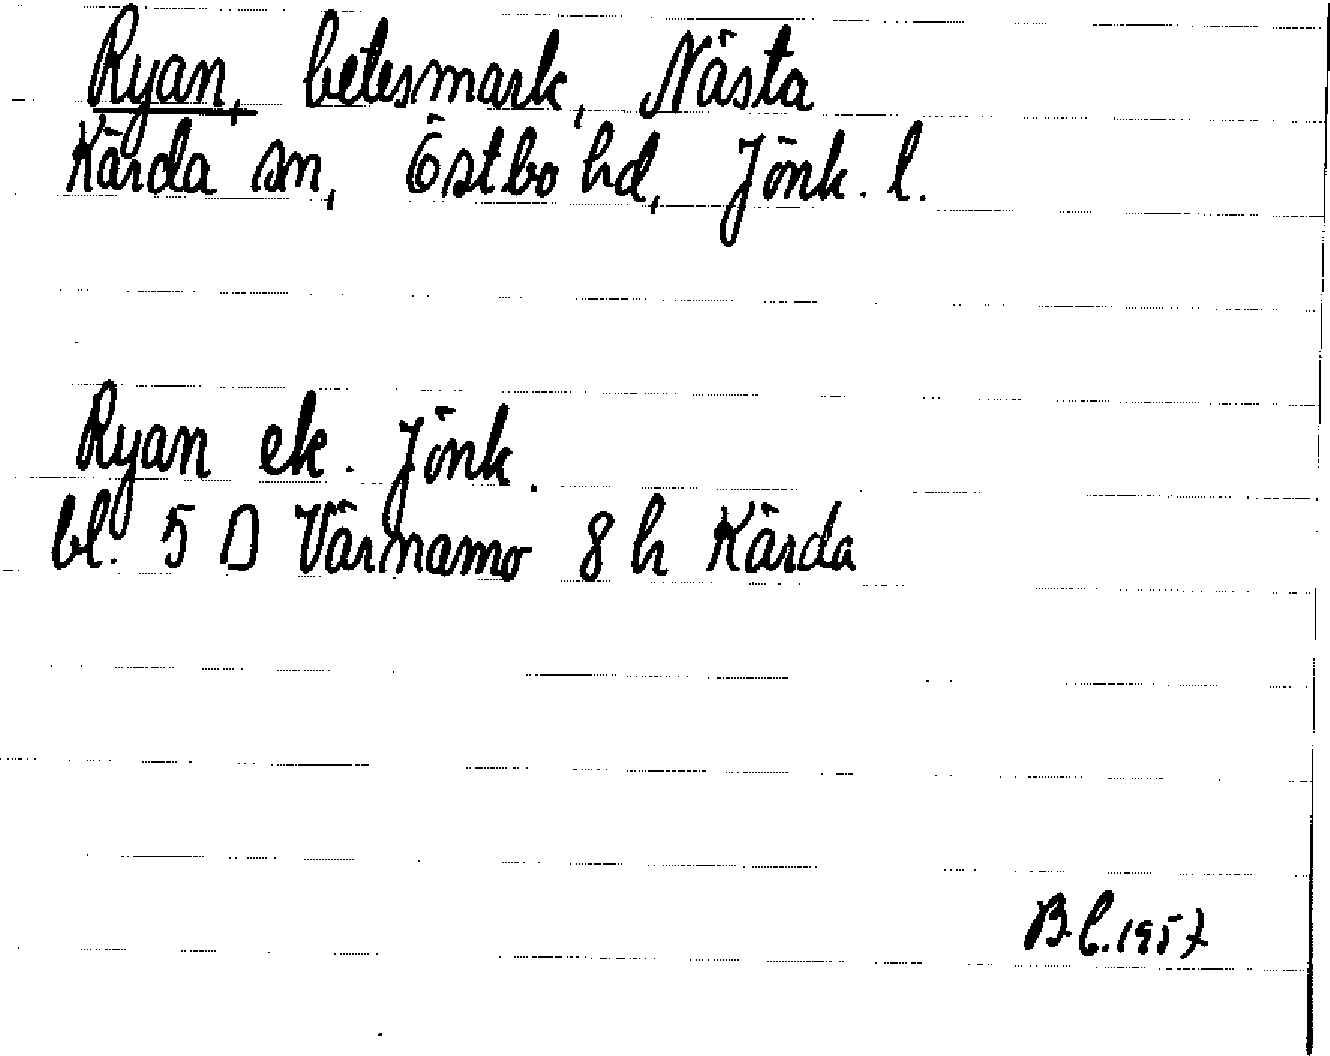 Ryan, betesmark, Nästa
Kärda sn, Östbo hd, Jönk. l.
Ryan ek. Jönk.
bl. 5 D Värnamo 8 h Kärda
B.l. 1957